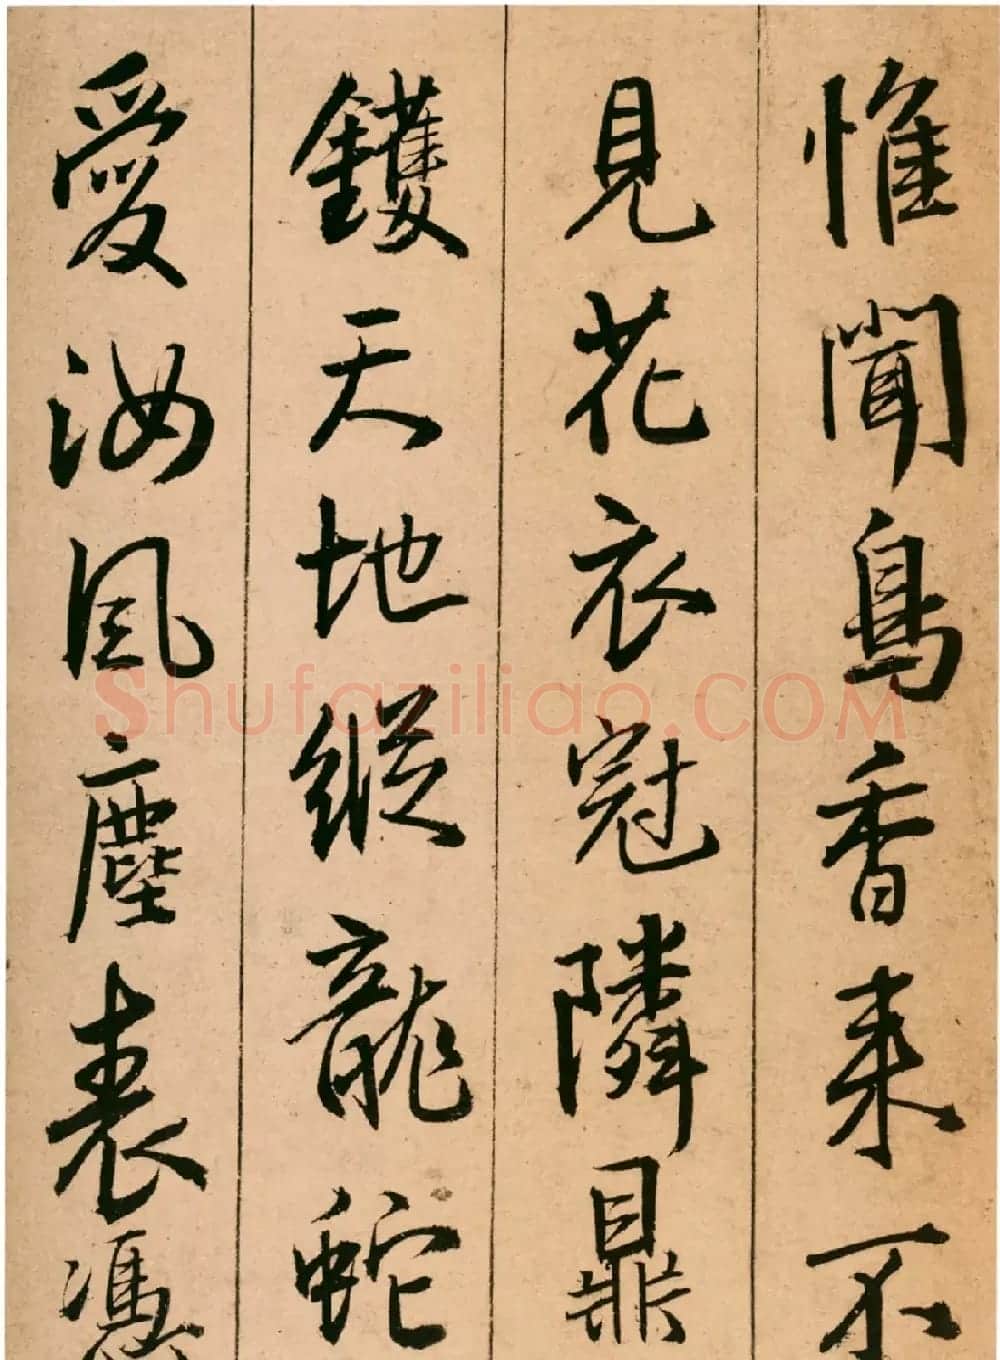 惟聞鳥香来不
見花衣冠隣鼎
鑊天地縱龍蛇
愛汝風塵表憑
Shufaziliao.COM